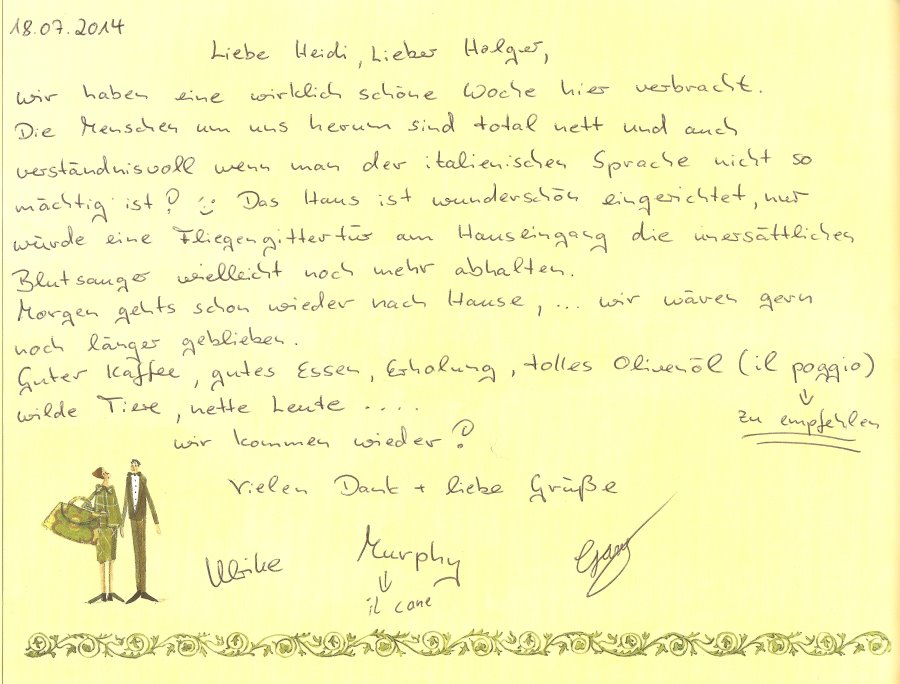 18.07.2014
Liebe Heidi, Lieber Holger,
wir haben eine wirklich schöne Woche hier verbracht.
Die Menschen um uns herum sind total nett und auch
verständnisvoll wenn man der italienischen Sprache nicht so
mächtig ist! Das Haus ist wunderschön eingerichtet, nur
würde eine Fliegengittertür am Hauseingang die unersättlichen
Blutsauger vielleicht noch mehr abhalten.
Morgen gehts schon wieder nach Hause, ... wir wären gern
noch länger geblieben.
Guter Kaffee, gutes Essen, Erholung, tolles Olivenöl (il poggio)
wilde Tiere, nette Leute ....
zu empfehlen
wir kommen wieder!
Vielen Dank + liebe Grüße
Ulrike Murphy
il cane